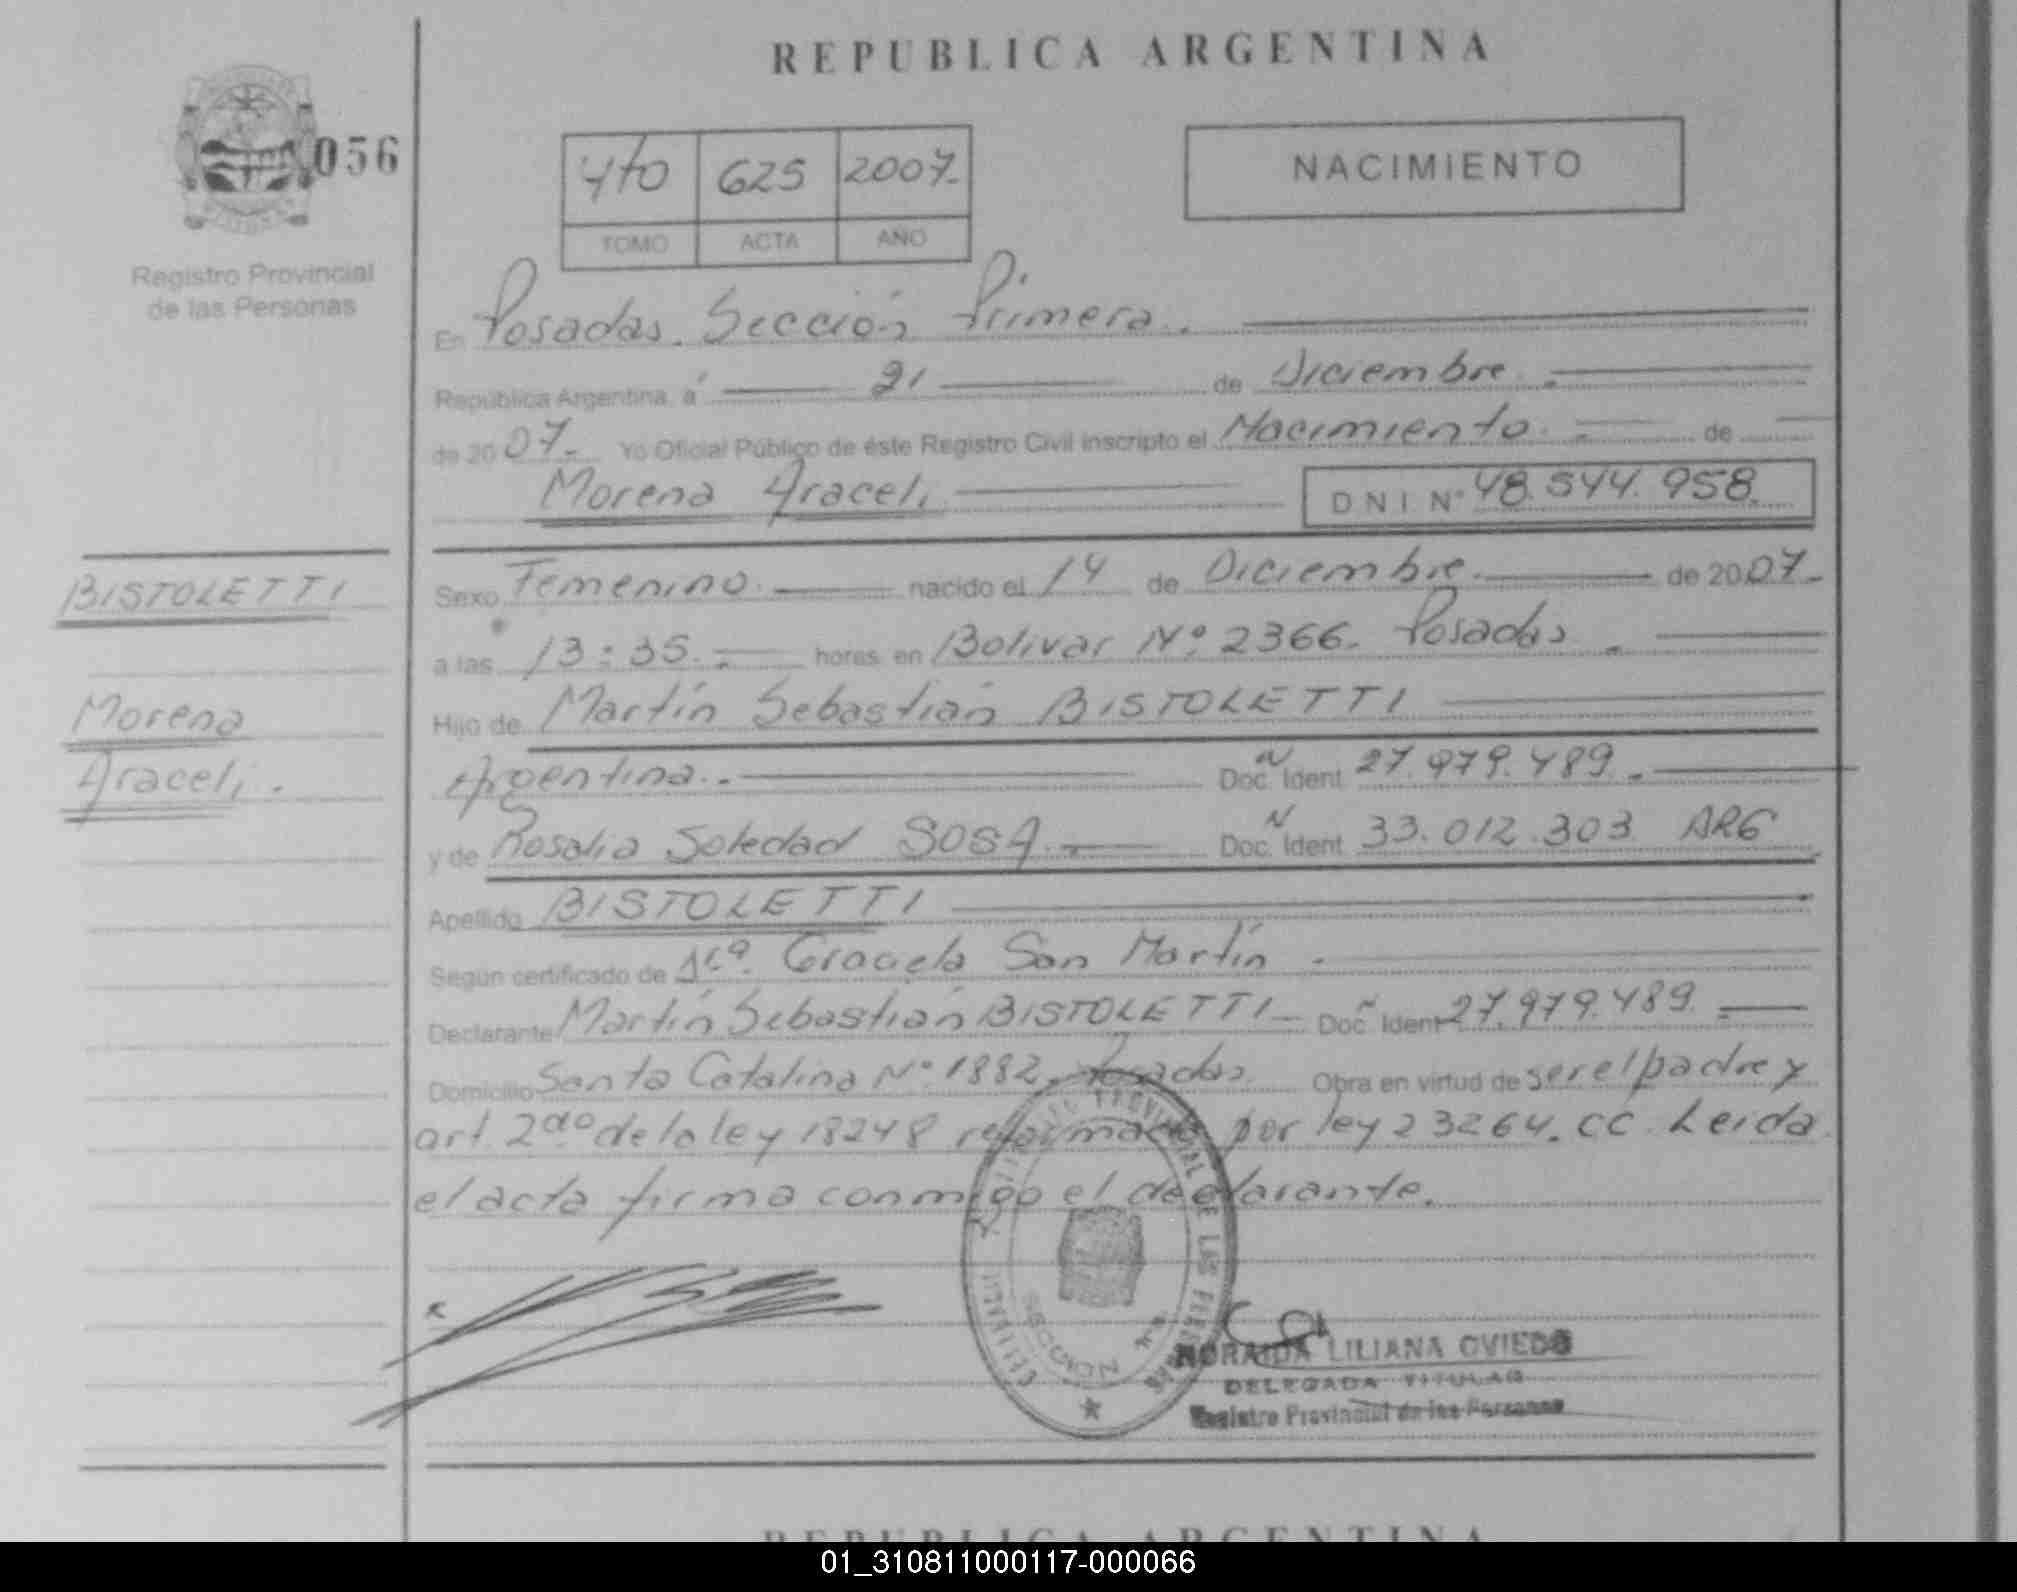 REPUBLICA ARGENTINA
056
Registro Provincial
de las Personas
4to 625 2007.-
TOMO ACTA AÑO
NACIMIENTO
En Posadas. Sección Primera.
República Argentina, a 21 de Diciembre.
de 2007.- Yo Oficial Público de éste Registro Civil inscripto el Nacimiento.- de
Morena Araceli DNI Nº 48.544.958.
BISTOLETTI
Morena
Araceli.
Sexo Femenino. nacido el 14 de Diciembre. de 2007.-
a las 13:35.- horas en Bolivar Nº 2366. Posadas.
Hijo de Martín Sebastián BISTOLETTI
Argentina.- Doc. Ident. 27.979.489.-
y de Rosalia Soledad SOSA.- Doc. Ident. 33.012.303 ARG
Apellido BISTOLETTI
Según certificado de Graciela San Martín.
Declarante Martín Sebastián BISTOLETTI- Doc. Ident 27.979.489.
Domicilio Santa Catalina Nº 1882. Posadas. Obra en virtud de ser el padre y
art. 2do de la ley 18248 reformado por ley 23264. CC. Leida
el acta firma conmigo el declarante.
x
REGISTRO PROVINCIAL DE LAS PERSONAS
SECCION
NORAIDA LILIANA OVIEDO
DELEGADA TITULAR
Registro Provincial de las Personas
REPUBLICA ARGENTINA
01_310811000117-000066